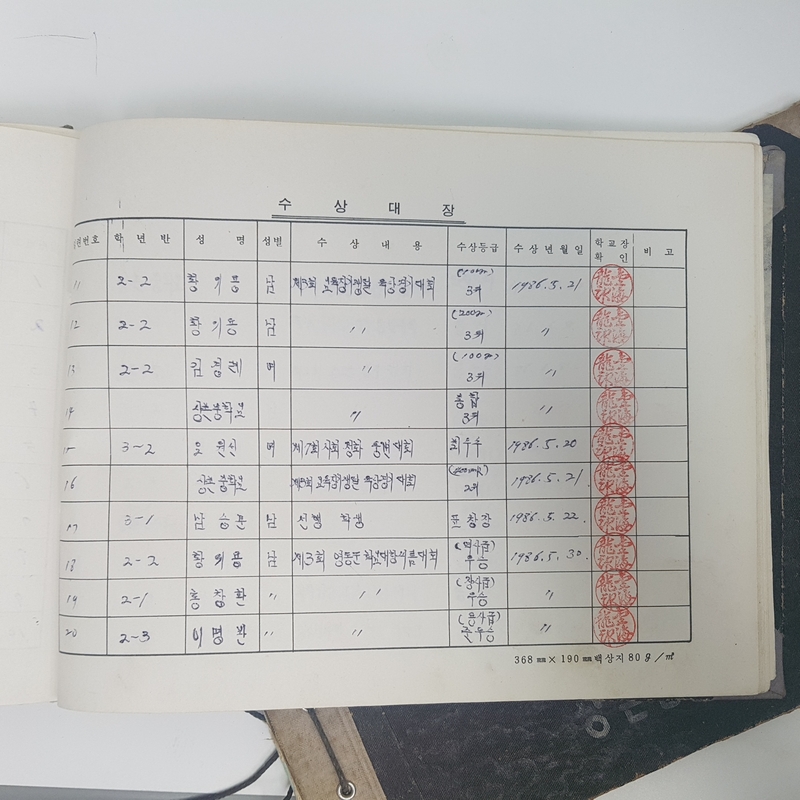 수 상 대 장
번호 학 년 반 성 명 성별 수 상 내 용 수상등급 수 상 년 월 일 학교장 확 인 비 고
11 2-2 황의용 남 제3회 교육장기쟁탈 육상경기대회 (100m) 3위 1986.5.21
12 2-2 황의용 남 〃 (200m) 3위 〃
13 2-2 김경례 여 〃 (100m) 3위 〃
14 중학교 〃 종합 3위 〃
3-2 원신 여 제7회 사회정화 웅변대회 최우수 1986.5.20
16 중학교 제3회 교육장기쟁탈 육상경기대회 2위 1986.5.21.
17 3-1 남승 남 선행 학생 표창장 1986.5.22.
18 2-2 황의용 남 제3회 영동군 학교대항씨름대회 (역사급) 우승 1986.5.30.
19 2-1 홍창환 〃 〃 (장사급) 우승 〃
20 2-3 이명환 〃 〃 (용사급) 준우승 〃
368㎜×190㎜ 백상지 80g/㎡